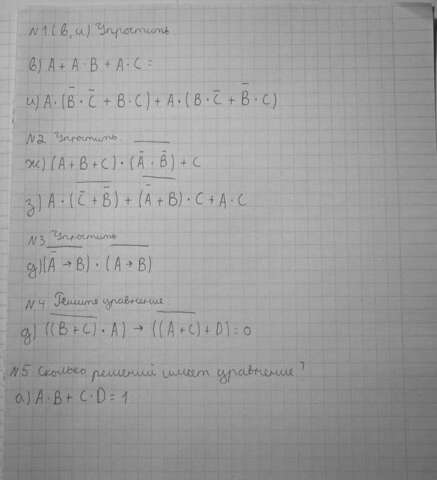 №1 (в, и) Упростить
в) A + A · B + A · C =
и) A · (B̅ · C̅ + B · C) + A · (B · C̅ + B̅ · C)
№2 Упростить
ж) (A + B + C) · (A̅ · B̅)̅ + C
з) A · (C̅ + B̅)̅ + (A̅ + B)̅ · C + A · C
№3 Упростить
д) (A̅ → B)̅ · (A → B)̅
№4 Решите уравнение
д) ((B + C)̅ · A) → ((A + C)̅ + D) = 0
№5 Сколько решений имеет уравнение?
а) A · B + C · D = 1